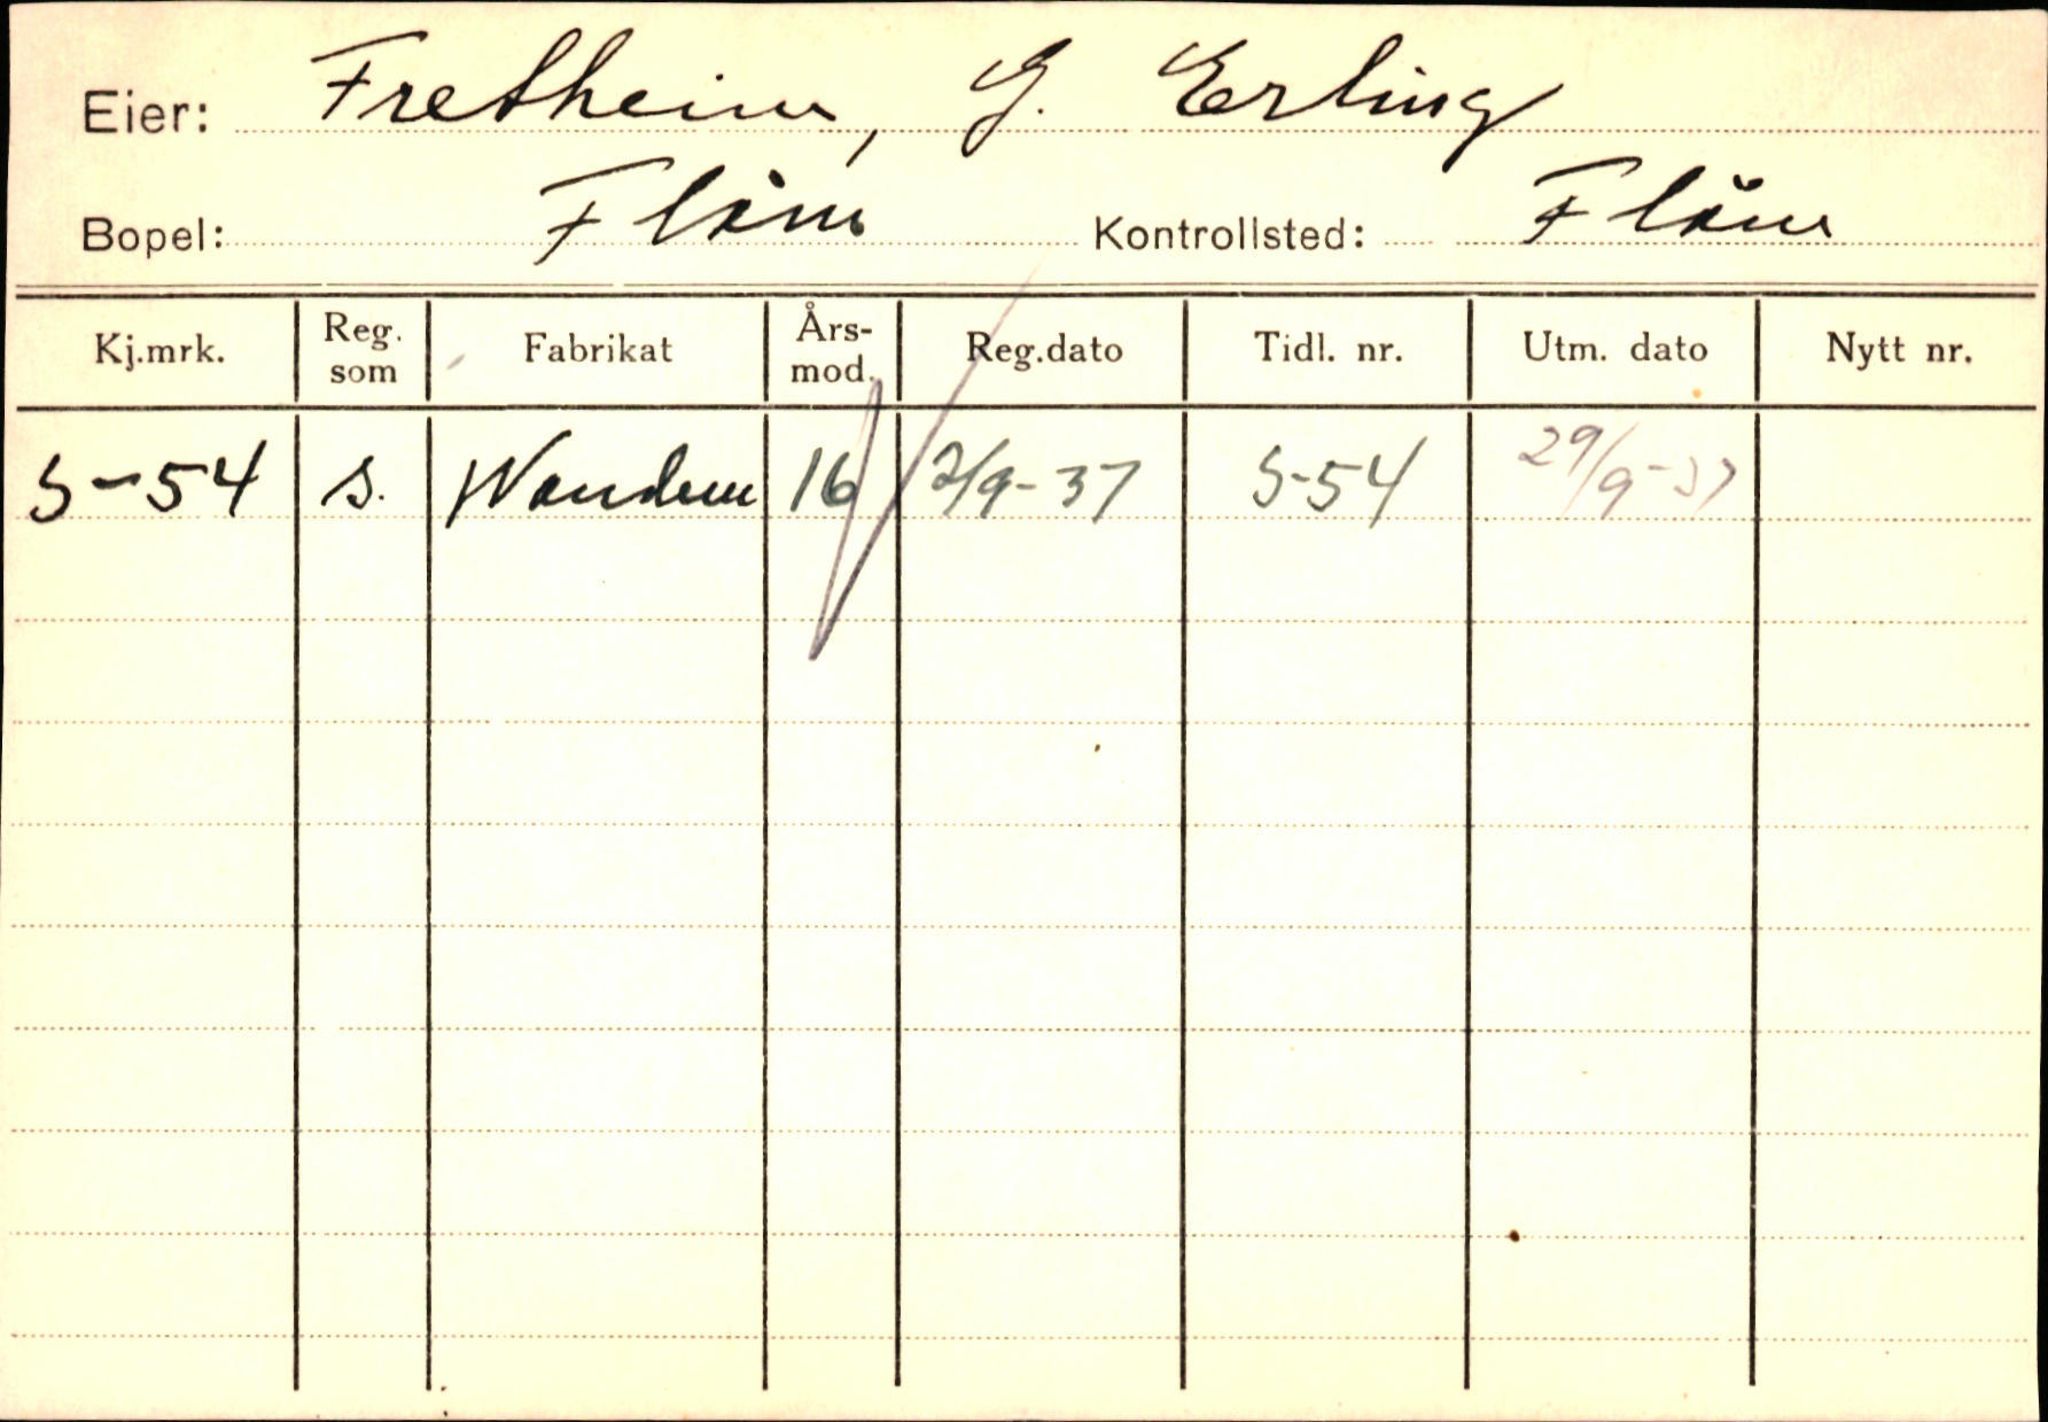 Eier: Fretheim, G. Erling
Bopel: Flåm Kontrollsted: Flåm
Kj.mrk. Reg. som Fabrikat Års-mod. Reg.dato Tidl. nr. Utm. dato Nytt nr.
S-54 s. 16 2/9-37 S-54 29/9-37